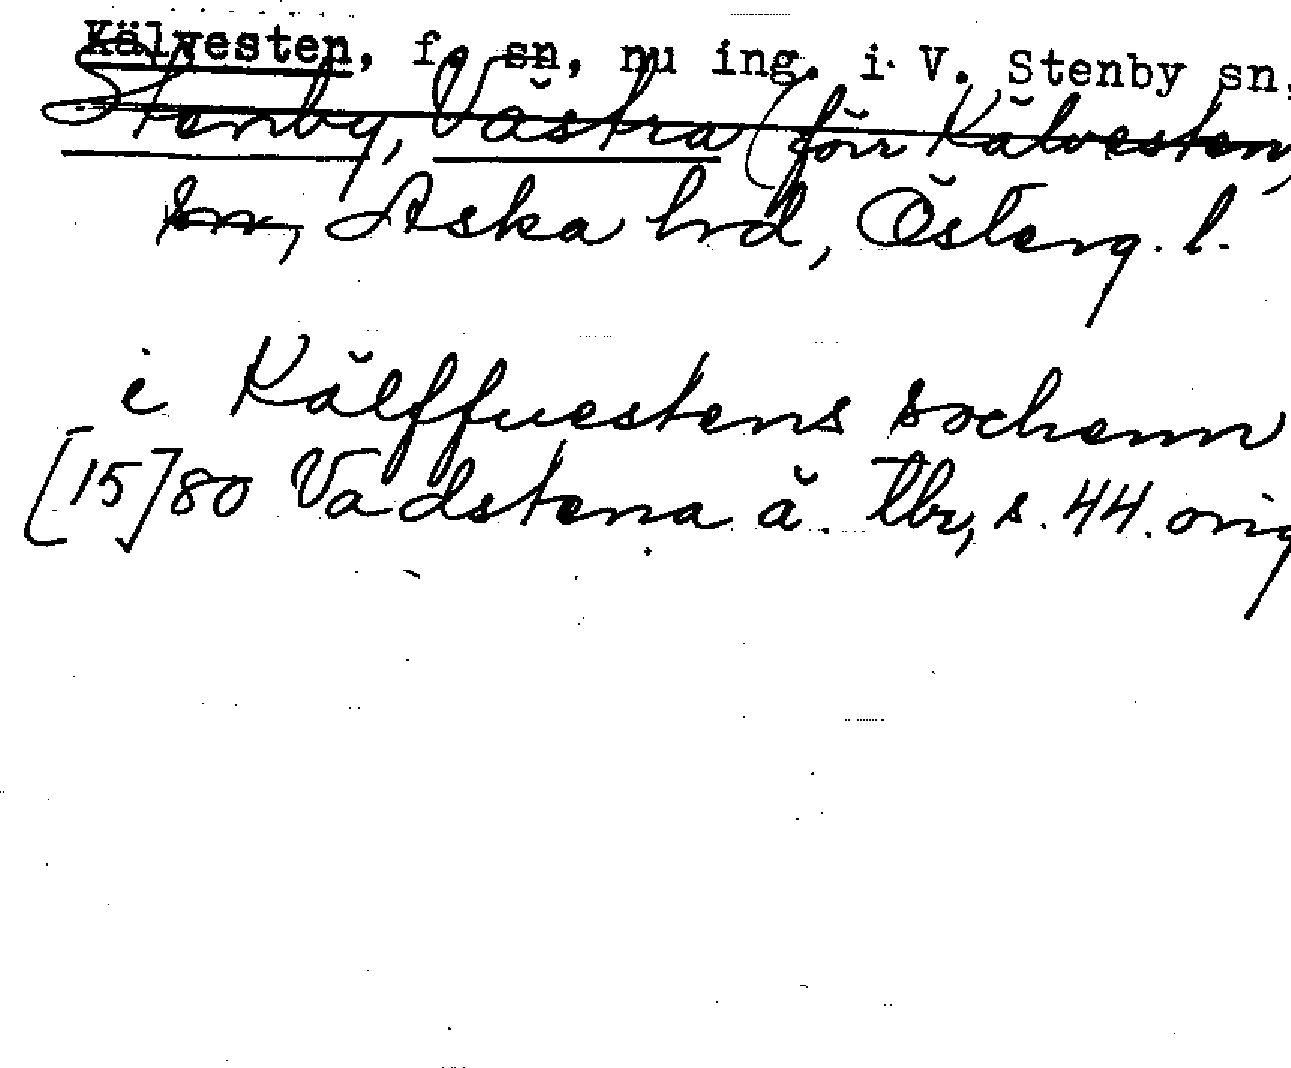 Kälvesten, f. sn, nu ing. i V. Stenby sn,
Stenby, Västra (förr Kälvesten,
sn, Aska hrd, Österg. l.
i Kälffuestens sochenn
[15]80 Vadstena ä. tbr, s. 44. orig